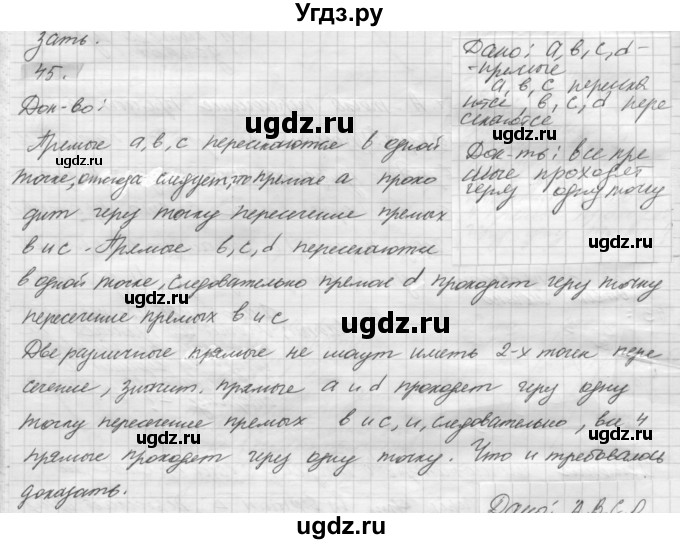 Угдз.ру
зать.
45.
Дано: a, в, c, d-
-прямые
a, в, c пересека
ются, в, c, d пере
секаются
Док-ть: все пря
мые проходят
через одну точку
Док-во:
Прямые a, в, c пересекаются в одной
точке, отсюда следует, что прямая a прохо
дит через точку пересечение прямых
в и c. Прямые в, c, d пересекаются
в одной точке, следовательно прямая d проходит через точку
пересечение прямых в и c
Две различные прямые не могут иметь 2-х точек пере
сечение, значит. прямые a и d проходят через одну
точку пересечение прямых в и c, и, следовательно, все 4
прямые проходят через одну точку. Что и требовалось
доказать.
Дано: A, B, C, D
ugdz.ru
ugdz.ru
ugdz.ru
ugdz.ru
ugdz.ru
ugdz.ru
ugdz.ru
ugdz.ru
ugdz.ru
ugdz.ru